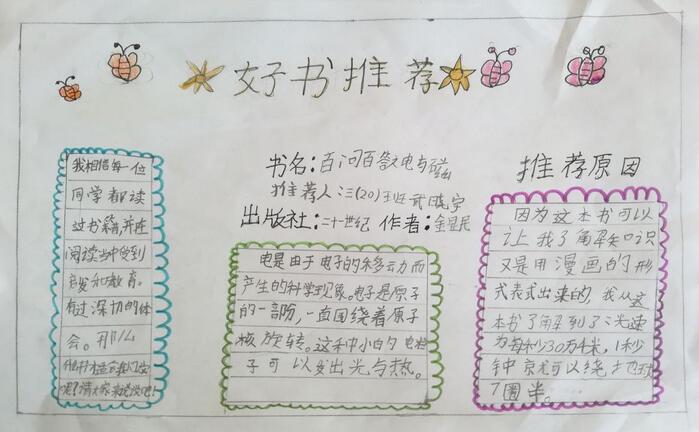 好书推荐
我相信每一位
同学都读
过书籍,并在
阅读当中受到
启发和教育。
有过深切的体
会。那么
呢?请大家来说说吧!
书名:百问百答电与磁
推荐人:三(20)班武晓宇
出版社:二十一世纪 作者:金显民
电是由于电子的移动而
产生的科学现象。电子是原子
的一部份,一直围绕着原子
核旋转。这种小的电粒
子可以变出光与热。
推荐原因
因为这本书可以
让我了解知识
又是用漫画的形
式表式出来的,我从这
本书了解到了:光速
为每秒30万千米,1秒
钟就可以绕地球
7圈半。